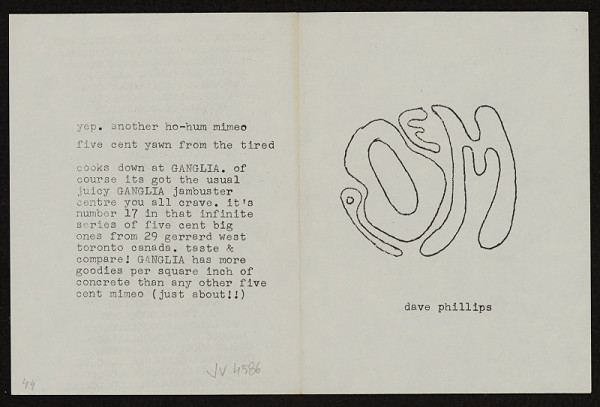 yep. another ho-hum mimeo
five cent yawn from the tired
cooks down at GANGLIA. of
course its got the usual
juicy GANGLIA jambuster
centre you all crave. it's
number 17 in that infinite
series of five cent big
ones from 29 gerrard west
toronto canada. taste &
compare! GANGLIA has more
goodies per square inch of
concrete than any other five
cent mimeo (just about!!)
JV 4586
44
POEM
dave phillips